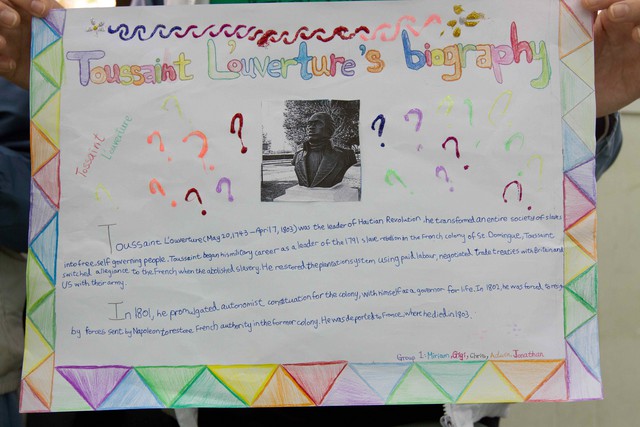 Toussaint L'ouverture's biography
Toussaint
Louverture
Toussaint L'ouverture (May 20, 1743 - April 7, 1803) was the leader of Haitian Revolution, he transformed an entire society of slaves
into free, self governing people. Toussaint began his military career as a leader of the 1791 slave rebellion in the French colony of St. Domingue, Toussaint
switched allegiance to the French when the abolished slavery. He restored the plantation system using paid labour, negotiated trade treaties with Britain and
US with their army.
In 1801, he promulgated autonomist constituation for the colony, with himself as a governor for life. In 1802, he was forced to
by forces sent by Napoleon to restore French authority in the former colony. He was deported to France, where he died in 1803.
Group 1: Miriam, Chris, Jonathan